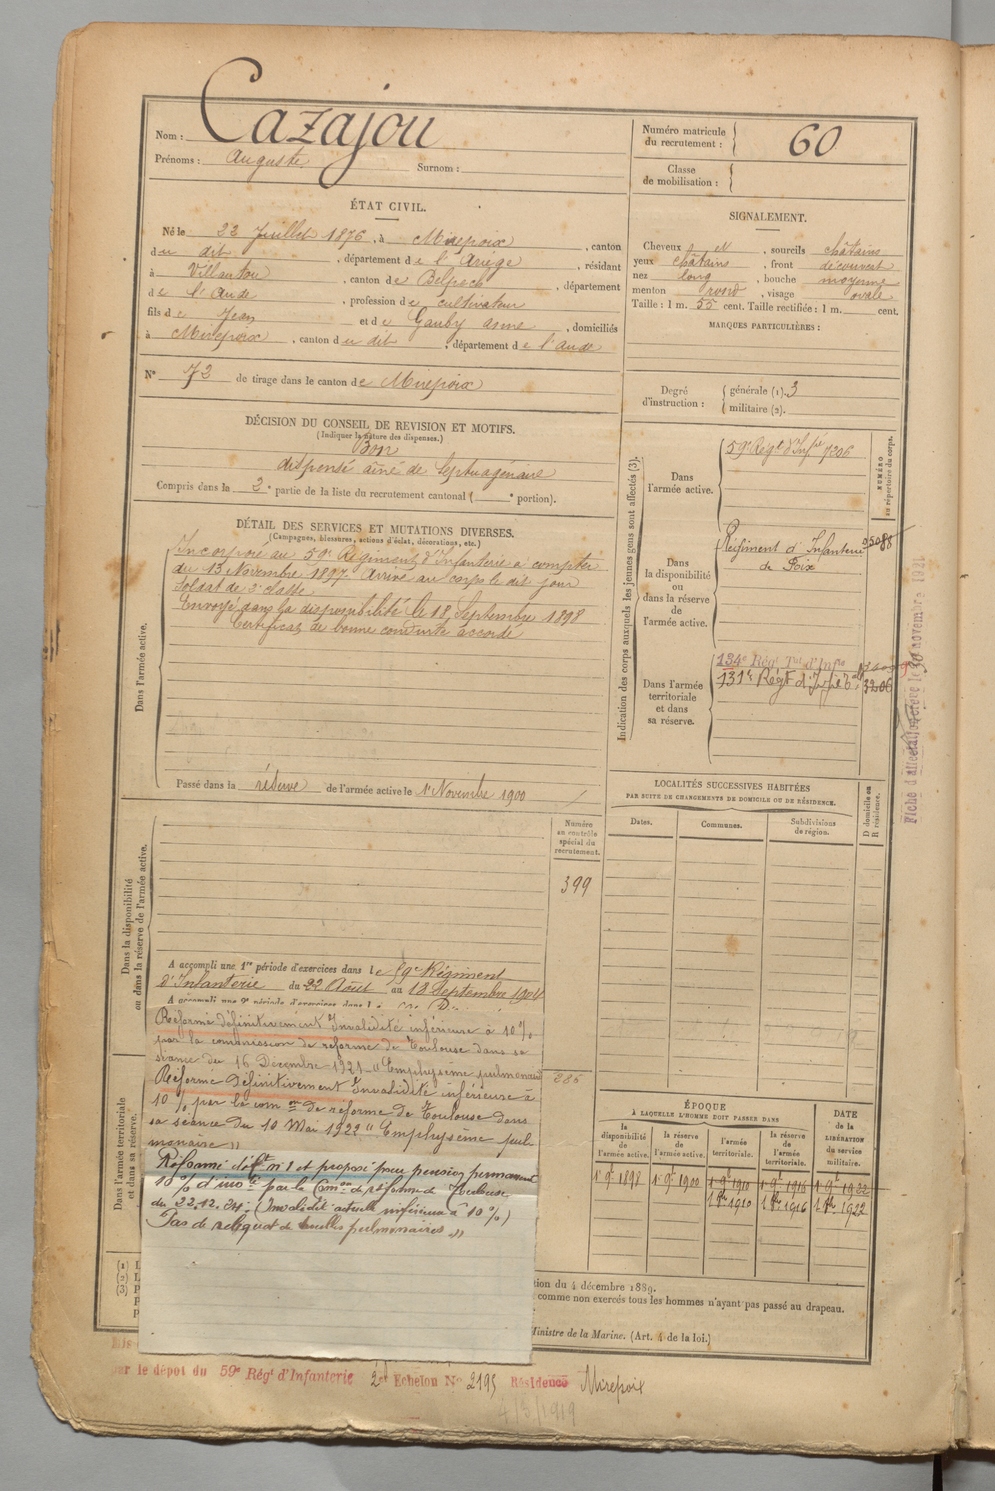 Nom : Cazajou
Prénoms : Auguste Surnom :
Numéro matricule du recrutement : 60
Classe de mobilisation :
ÉTAT CIVIL.
Né le 22 Juillet 1876, à Mirepoix, canton
du dit, département de l'Ariège, résidant
à Villautou, canton de Belpech, département
de l'Aude, profession de cultivateur
fils de Jean et de Gauby anne, domiciliés
à Mirepoix, canton du dit, département de l'aude
N° 72 de tirage dans le canton de Mirepoix
SIGNALEMENT.
Cheveux et, sourcils châtains
yeux châtains, front découvert
nez long, bouche moyenne
menton rond, visage ovale
Taille : 1 m. 55 cent. Taille rectifiée : 1 m. cent.
MARQUES PARTICULIÈRES :
Degré d'instruction : générale (1). 3
militaire (2).
DÉCISION DU CONSEIL DE REVISION ET MOTIFS.
(Indiquer la nature des dispenses.)
Bon
dispensé aîné de septuagénaire
Compris dans la 2e partie de la liste du recrutement cantonal ( e portion).
DÉTAIL DES SERVICES ET MUTATIONS DIVERSES.
(Campagnes, blessures, actions d'éclat, décorations, etc.)
Dans l'armée active.
Incorporé au 59e Régiment d'Infanterie à compter
du 13 Novembre 1897. Arrivé au corps le dit jour
Soldat de 2e classe
Envoyé dans la disponibilité le 18 Septembre 1898
Certificat de bonne conduite accordé
Passé dans la réserve de l'armée active le 1er Novembre 1900
Indication des corps auxquels les jeunes gens sont affectés (3).
NUMÉRO au répertoire du corps.
Dans l'armée active.
59e Régt d'Infie 7206
Dans la disponibilité ou dans la réserve de l'armée active.
Régiment d'Infanterie
de Foix
05088
Dans l'armée territoriale et dans sa réserve.
134e Régt Tal d'Infie
131e Régt d'Infie Tale
3206
Fiche d'affectation
novembre 1921
LOCALITÉS SUCCESSIVES HABITÉES
PAR SUITE DE CHANGEMENTS DE DOMICILE OU DE RÉSIDENCE.
Dates. Communes. Subdivisions de région.
D domicile ou R résidence.
Dans la disponibilité ou dans la réserve de l'armée active.
Numéro au contrôle spécial du recrutement.
399
A accompli une 1re période d'exercices dans le 59e Régiment
d'Infanterie du 22 Août au 18 Septembre 1904
A accompli une 2e période d'exercices dans l
Réformé définitivement Invalidité inférieure à 10%
par la commission de réforme de Toulouse dans sa
séance du 16 Décembre 1921 "Emphysème pulmonaire
Réformé définitivement Invalidité inférieure à
10% par la comon de réforme de Toulouse dans
sa séance du 10 Mai 1922 "Emphysème pul-
monaire"
Réformé déft n°1 et proposé pour pension permanente
10% d'inv té par la Comon de réforme de Toulouse
du 22.12.24. (Invalidité actuelle inférieure à 10%)
Pas de reliquat de pulmonaires"
Dans l'armée territoriale et dans sa réserve.
286
ÉPOQUE
À LAQUELLE L'HOMME DOIT PASSER DANS
la disponibilité de l'armée active.
la réserve de l'armée active.
l'armée territoriale.
la réserve de l'armée territoriale.
DATE de la LIBÉRATION du service militaire.
1er 9bre 1898 1er 9bre 1900 1er 9bre 1910 1er 9bre 1916 1er 9bre 1922
1er 8bre 1910 1er 8bre 1916 1er 8bre 1922
(1)
(2)
(3)
tion du 4 décembre 1889.
comme non exercés tous les hommes n'ayant pas passé au drapeau.
Ministre de la Marine. (Art. 4 de la loi.)
par le dépôt du 59e Régt d'Infanterie 2e Echelon N° 2195 Résidence Mirepoix
4/3/1919